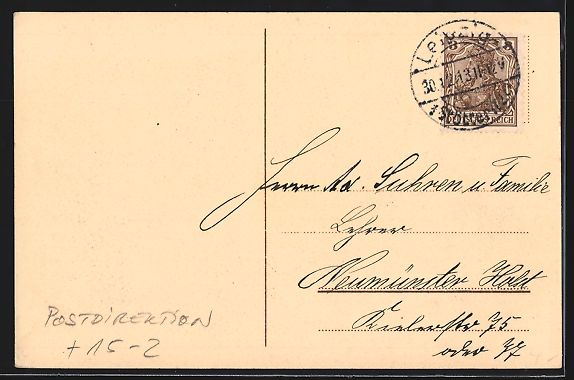 LEIPZIG
30.12.13.11-12V
DEUTSCHES REICH
Herrn Ad. Suhren u Familie
Lehrer
Neumünster Holst
Kielerstr 75
oder 77
POSTDIREKTION
+ 15-2